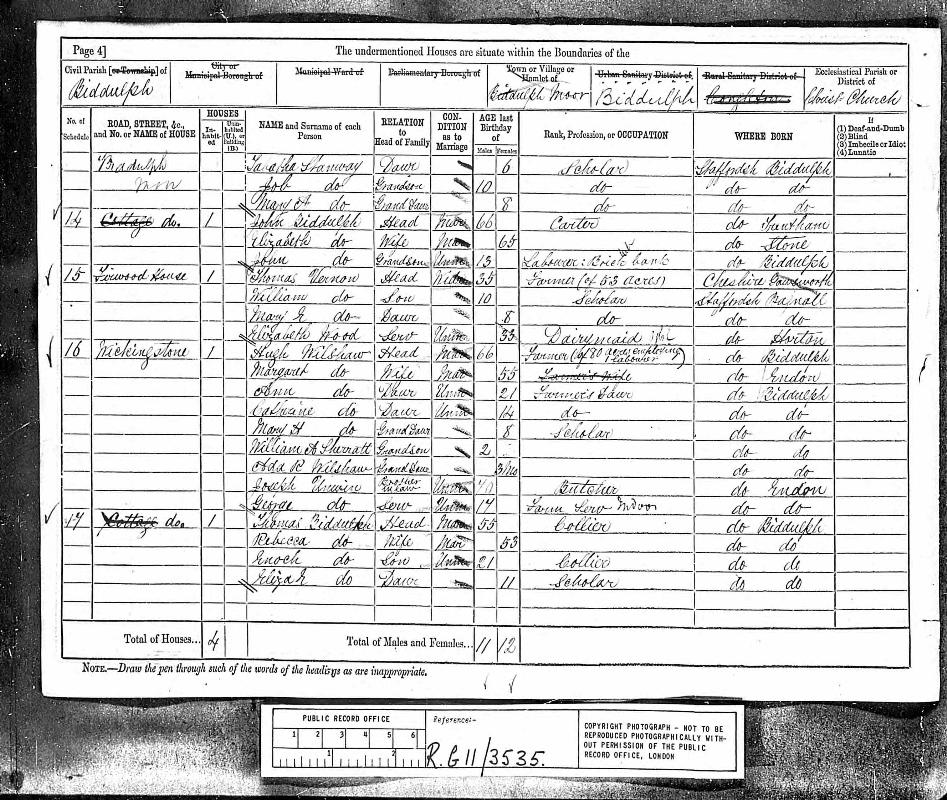 Page 4]
The undermentioned Houses are situate within the Boundaries of the
Civil Parish [or Township] of
Biddulph
City or Municipal Borough of
Municipal Ward of
Parliamentary Borough of
Town or Village or Hamlet of
Biddulph Moor
Urban Sanitary District of
Biddulph
Rural Sanitary District of
Congleton
Ecclesiastical Parish or District of
Christ Church
No. of Schedule
ROAD, STREET, &c., and No. or NAME of HOUSE
HOUSES
Inhabited
Uninhabited (U.), or Building (B.)
NAME and Surname of each Person
RELATION to Head of Family
CONDITION as to Marriage
AGE last Birthday of
Males
Females
Rank, Profession, or OCCUPATION
WHERE BORN
If
(1) Deaf-and-Dumb
(2) Blind
(3) Imbecile or Idiot
(4) Lunatic
Biddulph Stanway Dawr 6 Scholar Staffordsh Biddulph
Job do Grandson 10 do do do
Mary A do Grand Dawr 8 do do do
14 Cottage do. 1 John Biddulph Head Mar 66 Carter do Trentham
Elizabeth do Wife Mar 65 do Stone
John do Grandson Unm 13 Labourer: Brick bank do Biddulph
15 Firwood House 1 Thomas Vernon Head Widr 35 Farmer (of 53 acres) Cheshire Gawsworth
William do Son 10 Scholar Staffordsh Bagnall
Mary E do Dawr 8 do do do
Elizabeth Wood Serv Unm 33 Dairymaid do Horton
16 Nickingstone 1 Hugh Wilshaw Head Mar 66 Farmer (of 80 acres employing 1 labourer) do Biddulph
Margaret do Wife Mar 55 Farmer's Wife do Endon
Ann do Dawr Unm 21 Farmer's Dawr do Biddulph
Catherine do Dawr Unm 14 do do do
Mary H do Grand Dawr 8 Scholar do do
William A Sherratt Grandson 2 do do
Ada R Wilshaw Grand Dawr 3 Mo do do
Joseph Unwin Brother in law Unm Butcher do Endon
George do Serv Unm 17 Farm Serv Indoor do do
17 Cottage do. 1 Thomas Biddulph Head Mar 55 Collier do Biddulph
Rebecca do Wife Mar 53 do do
Enoch do Son Unm 21 Collier do do
Eliza E do Dawr 11 Scholar do do
Total of Houses... 4
Total of Males and Females... 11 12
NOTE.—Draw the pen through such of the words of the headings as are inappropriate.
PUBLIC RECORD OFFICE
1 2 3 4 5 6
1 2
Reference:-
R.G 11/3535.
COPYRIGHT PHOTOGRAPH - NOT TO BE REPRODUCED PHOTOGRAPHICALLY WITHOUT PERMISSION OF THE PUBLIC RECORD OFFICE, LONDON